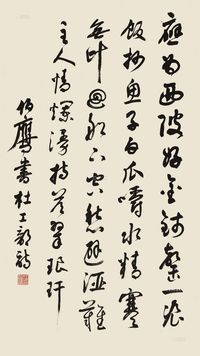 應为西陂好金錢罄一飡
飯抄雲子白瓜嚼水精寒
無計回船下空愁避酒難
主人情爛漫持答翠琅玕
伯鷹書杜工部詩